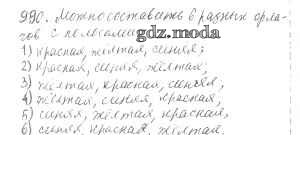 990. Можно составить 6 разных фла-
гов с полосами
gdz.moda
1) красная, жёлтая, синяя;
2) красная, синяя, жёлтая;
3) жёлтая, красная, синяя,
4) жёлтая, синяя, красная,
5) синяя, жёлтая, красная,
6) синяя, красная, жёлтая.